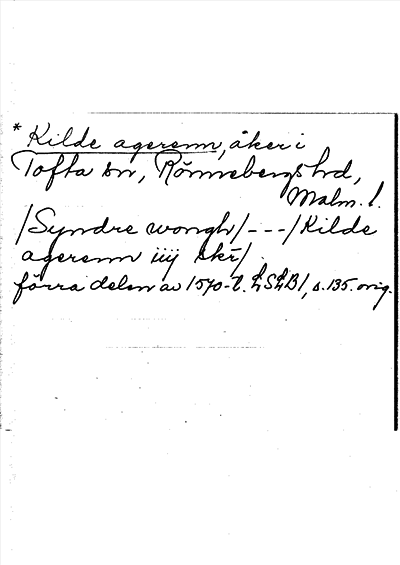 * Kilde agerenn, åker i
Tofta sn, Rönnebergs hd,
Malm. l.
/Syndre wongh/ --- /Kilde
agerenn iiij skr/
förra delen av 1570-t. LSLB1, s. 135. orig.